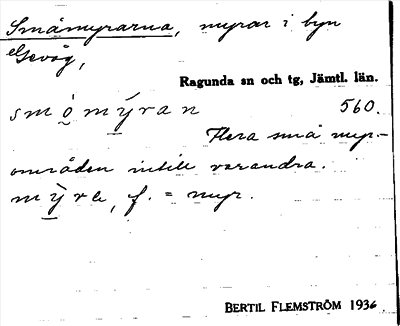 Småmyrarna, myrar i byn
Gevåg,
Ragunda sn och tg, Jämtl. län.
smo̱mýran 560.
Flera små myr-
områden intill varandra.
mỳre, f. = myr.
BERTIL FLEMSTRÖM 1936